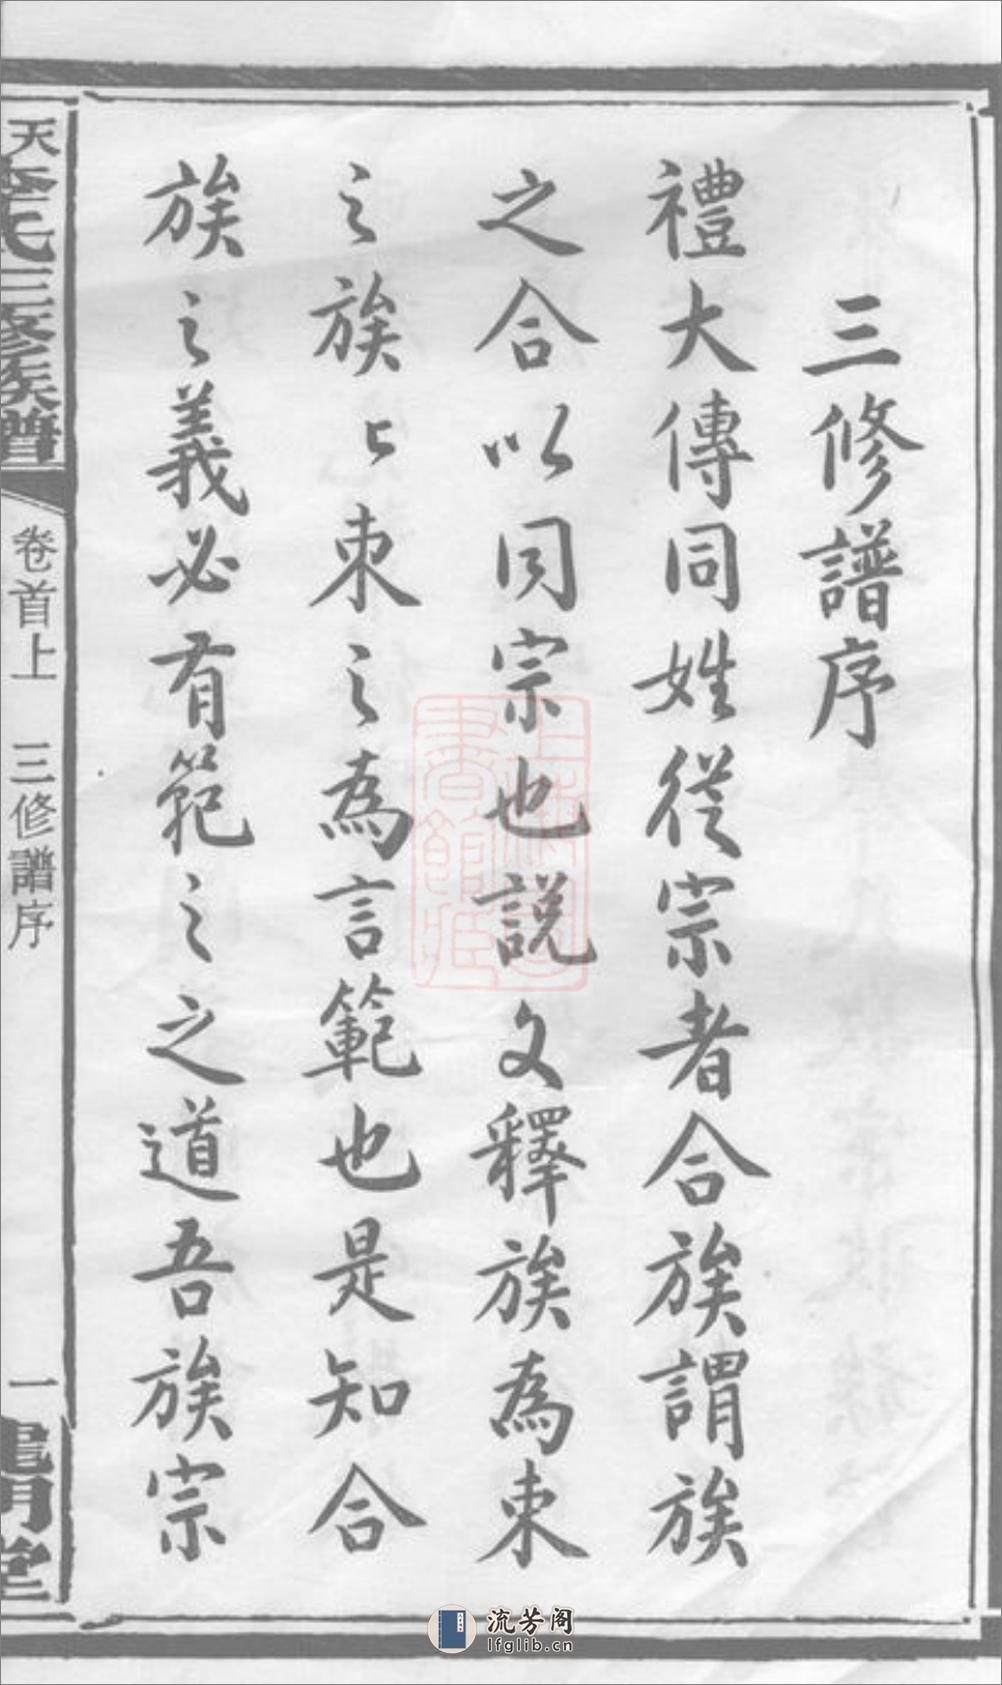 三修譜序
禮大傳同姓從宗者合族謂族
之合以同宗也說文釋族為束
之族〻束之為言範也是知合
族之義必有範之之道吾族宗
氏三修族譜
卷首上 三修譜序
一
明堂
上海圖書館藏
流芳阁
lfglib.cn